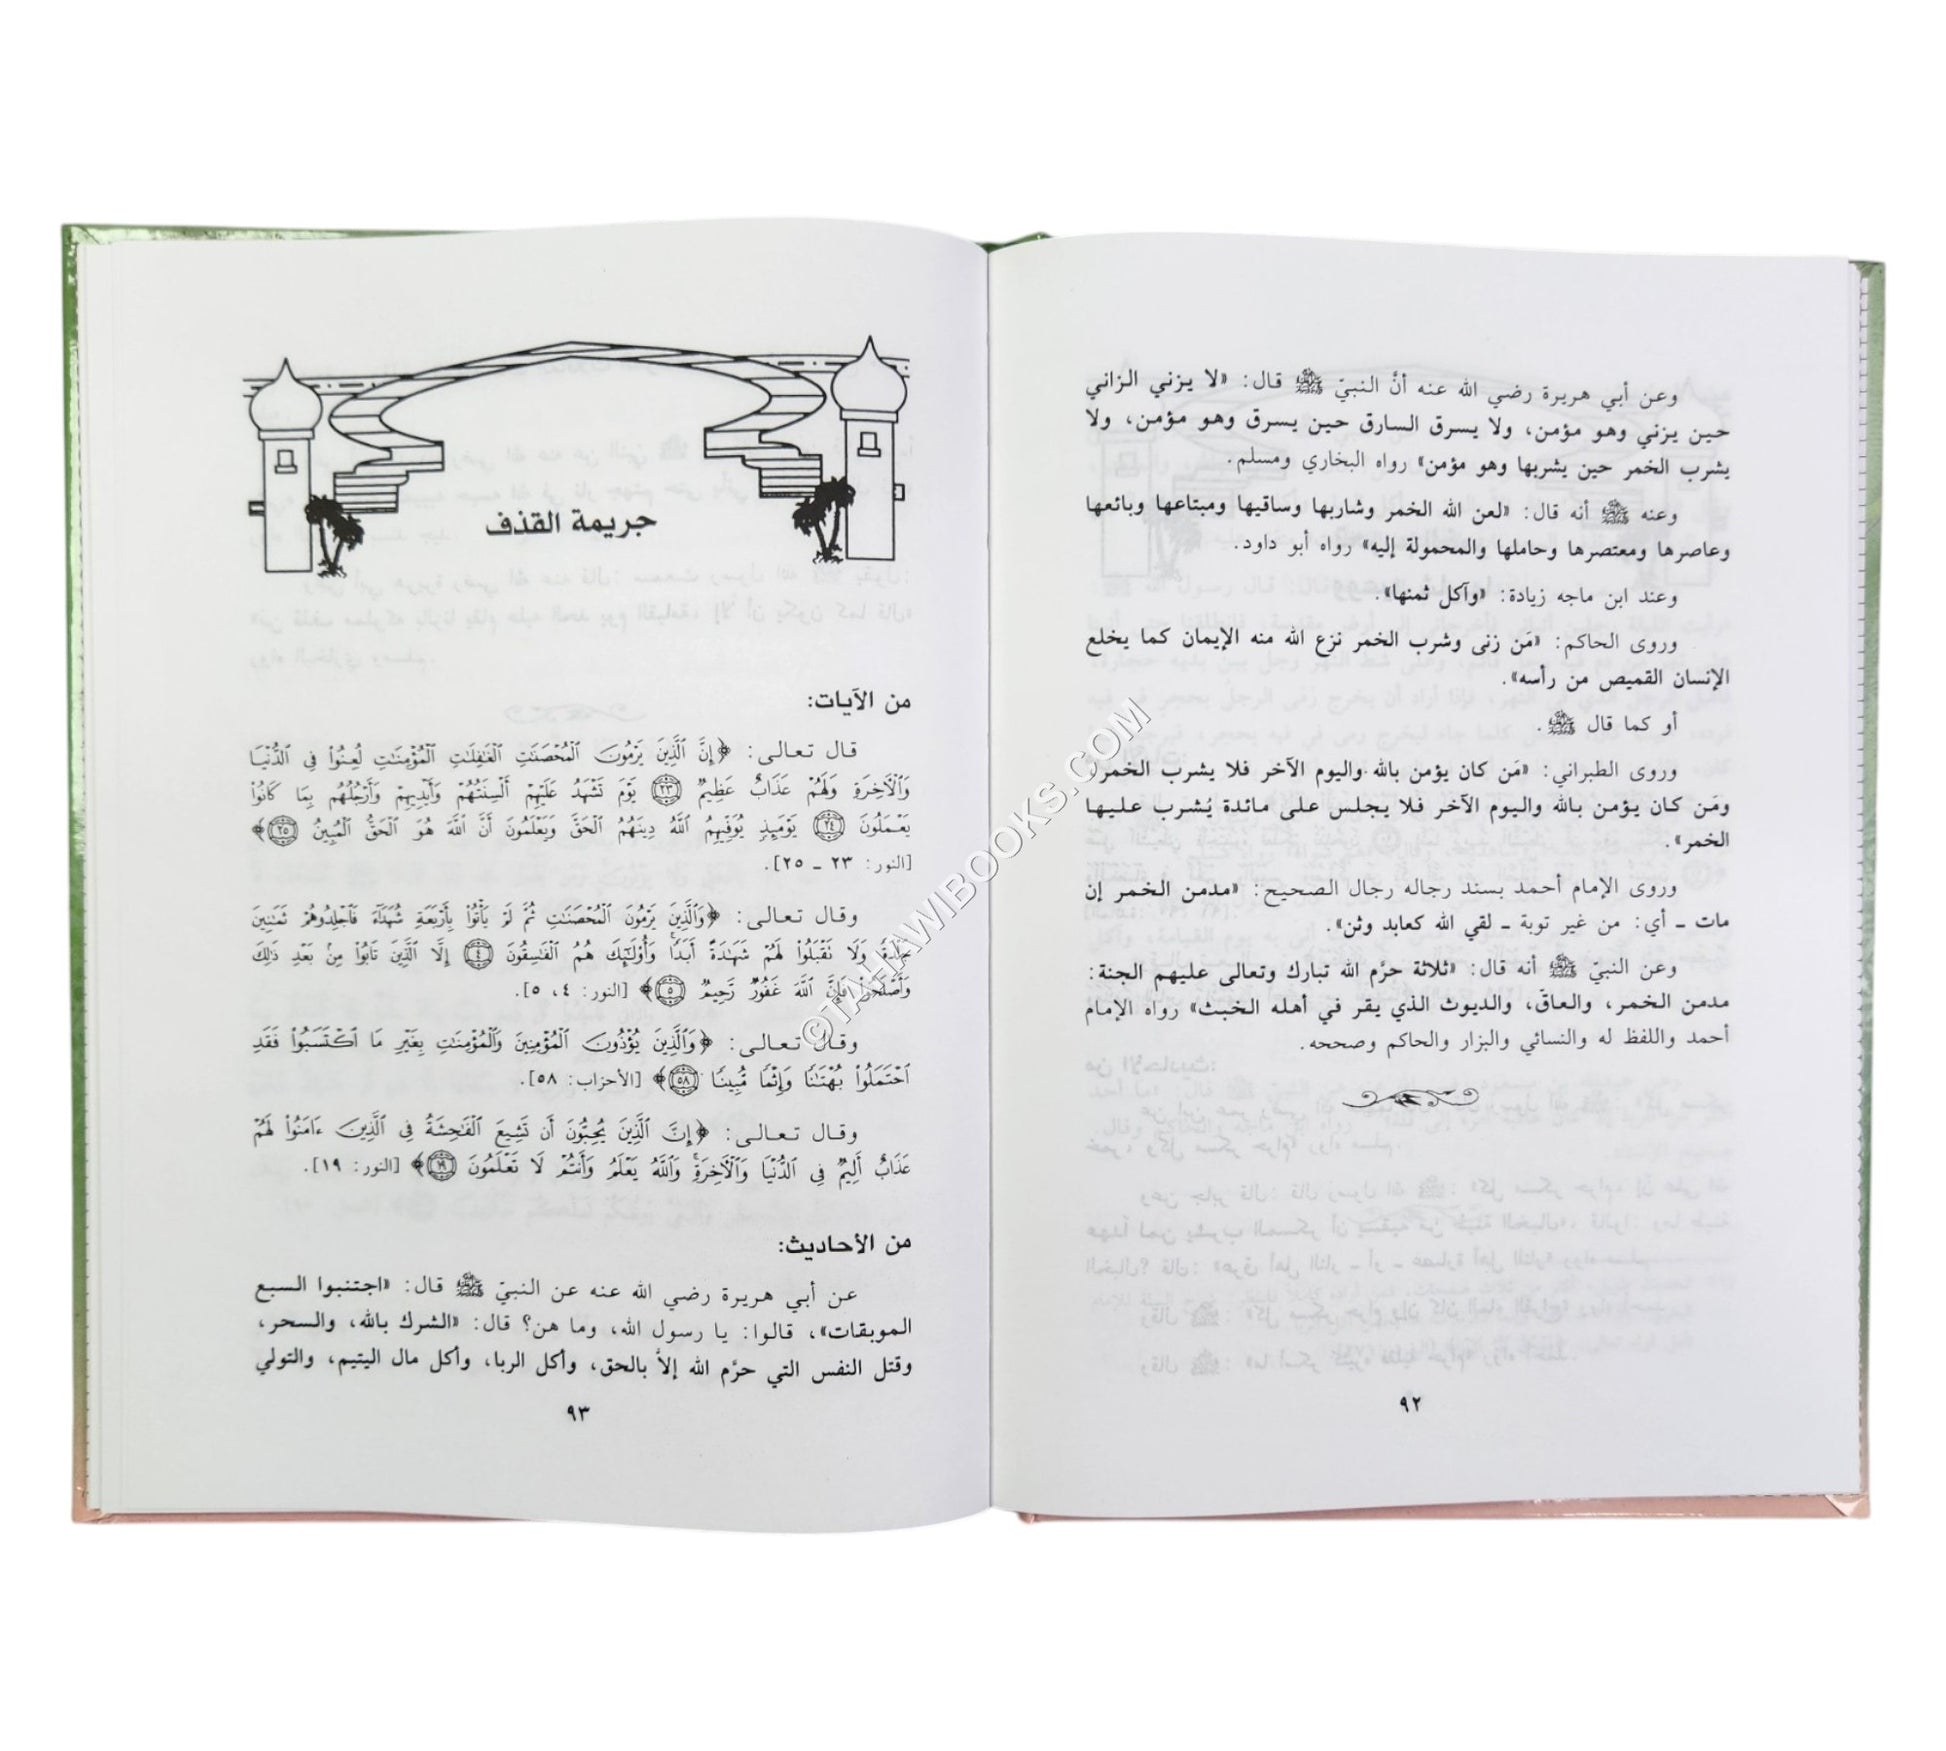 وعن أبي هريرة رضي الله عنه أنَّ النبيّ ﷺ قال: «لا يزني الزاني
حين يزني وهو مؤمن، ولا يسرق السارق حين يسرق وهو مؤمن، ولا
يشرب الخمر حين يشربها وهو مؤمن» رواه البخاري ومسلم.
وعنه ﷺ أنه قال: «لعن الله الخمر وشاربها وساقيها ومبتاعها وبائعها
وعاصرها ومعتصرها وحاملها والمحمولة إليه» رواه أبو داود.
وعند ابن ماجه زيادة: «وآكل ثمنها».
وروى الحاكم: «مَن زنى وشرب الخمر نزع الله منه الإيمان كما يخلع
الإنسان القميص من رأسه».
أو كما قال ﷺ.
وروى الطبراني: «مَن كان يؤمن بالله واليوم الآخر فلا يشرب الخمر،
ومَن كان يؤمن بالله واليوم الآخر فلا يجلس على مائدة يُشرب عليها
الخمر».
وروى الإمام أحمد بسند رجاله رجال الصحيح: «مدمن الخمر إن
مات ـ أي: من غير توبة ـ لقي الله كعابد وثن».
وعن النبيّ ﷺ أنه قال: «ثلاثة حرَّم الله تبارك وتعالى عليهم الجنة:
مدمن الخمر، والعاقّ، والديوث الذي يقر في أهله الخبث» رواه الإمام
أحمد واللفظ له والنسائي والبزار والحاكم وصححه.
٩٢
جريمة القذف
من الآيات:
قال تعالى: ﴿إِنَّ ٱلَّذِينَ يَرْمُونَ ٱلْمُحْصَنَٰتِ ٱلْغَٰفِلَٰتِ ٱلْمُؤْمِنَٰتِ لُعِنُوا۟ فِى ٱلدُّنْيَا
وَٱلْءَاخِرَةِ وَلَهُمْ عَذَابٌ عَظِيمٌ ٢٣ يَوْمَ تَشْهَدُ عَلَيْهِمْ أَلْسِنَتُهُمْ وَأَيْدِيهِمْ وَأَرْجُلُهُم بِمَا كَانُوا۟
يَعْمَلُونَ ٢٤ يَوْمَئِذٍ يُوَفِّيهِمُ ٱللَّهُ دِينَهُمُ ٱلْحَقَّ وَيَعْلَمُونَ أَنَّ ٱللَّهَ هُوَ ٱلْحَقُّ ٱلْمُبِينُ ٢٥﴾
[النور: ٢٣ ـ ٢٥].
وقال تعالى: ﴿وَٱلَّذِينَ يَرْمُونَ ٱلْمُحْصَنَٰتِ ثُمَّ لَمْ يَأْتُوا۟ بِأَرْبَعَةِ شُهَدَآءَ فَٱجْلِدُوهُمْ ثَمَٰنِينَ
جَلْدَةً وَلَا تَقْبَلُوا۟ لَهُمْ شَهَٰدَةً أَبَدًا وَأُو۟لَٰٓئِكَ هُمُ ٱلْفَٰسِقُونَ ٤ إِلَّا ٱلَّذِينَ تَابُوا۟ مِنۢ بَعْدِ ذَٰلِكَ
وَأَصْلَحُوا۟ فَإِنَّ ٱللَّهَ غَفُورٌ رَّحِيمٌ ٥﴾ [النور: ٤، ٥].
وقال تعالى: ﴿وَٱلَّذِينَ يُؤْذُونَ ٱلْمُؤْمِنِينَ وَٱلْمُؤْمِنَٰتِ بِغَيْرِ مَا ٱكْتَسَبُوا۟ فَقَدِ
ٱحْتَمَلُوا۟ بُهْتَٰنًا وَإِثْمًا مُّبِينًا ٥٨﴾ [الأحزاب: ٥٨].
وقال تعالى: ﴿إِنَّ ٱلَّذِينَ يُحِبُّونَ أَن تَشِيعَ ٱلْفَٰحِشَةُ فِى ٱلَّذِينَ ءَامَنُوا۟ لَهُمْ
عَذَابٌ أَلِيمٌ فِى ٱلدُّنْيَا وَٱلْءَاخِرَةِ وَٱللَّهُ يَعْلَمُ وَأَنتُمْ لَا تَعْلَمُونَ ١٩﴾ [النور: ١٩].
من الأحاديث:
عن أبي هريرة رضي الله عنه عن النبيّ ﷺ قال: «اجتنبوا السبع
الموبقات»، قالوا: يا رسول الله، وما هن؟ قال: «الشرك بالله، والسحر،
وقتل النفس التي حرَّم الله إلاَّ بالحق، وأكل الربا، وأكل مال اليتيم، والتولي
٩٣
©TAHAWIBOOKS.COM